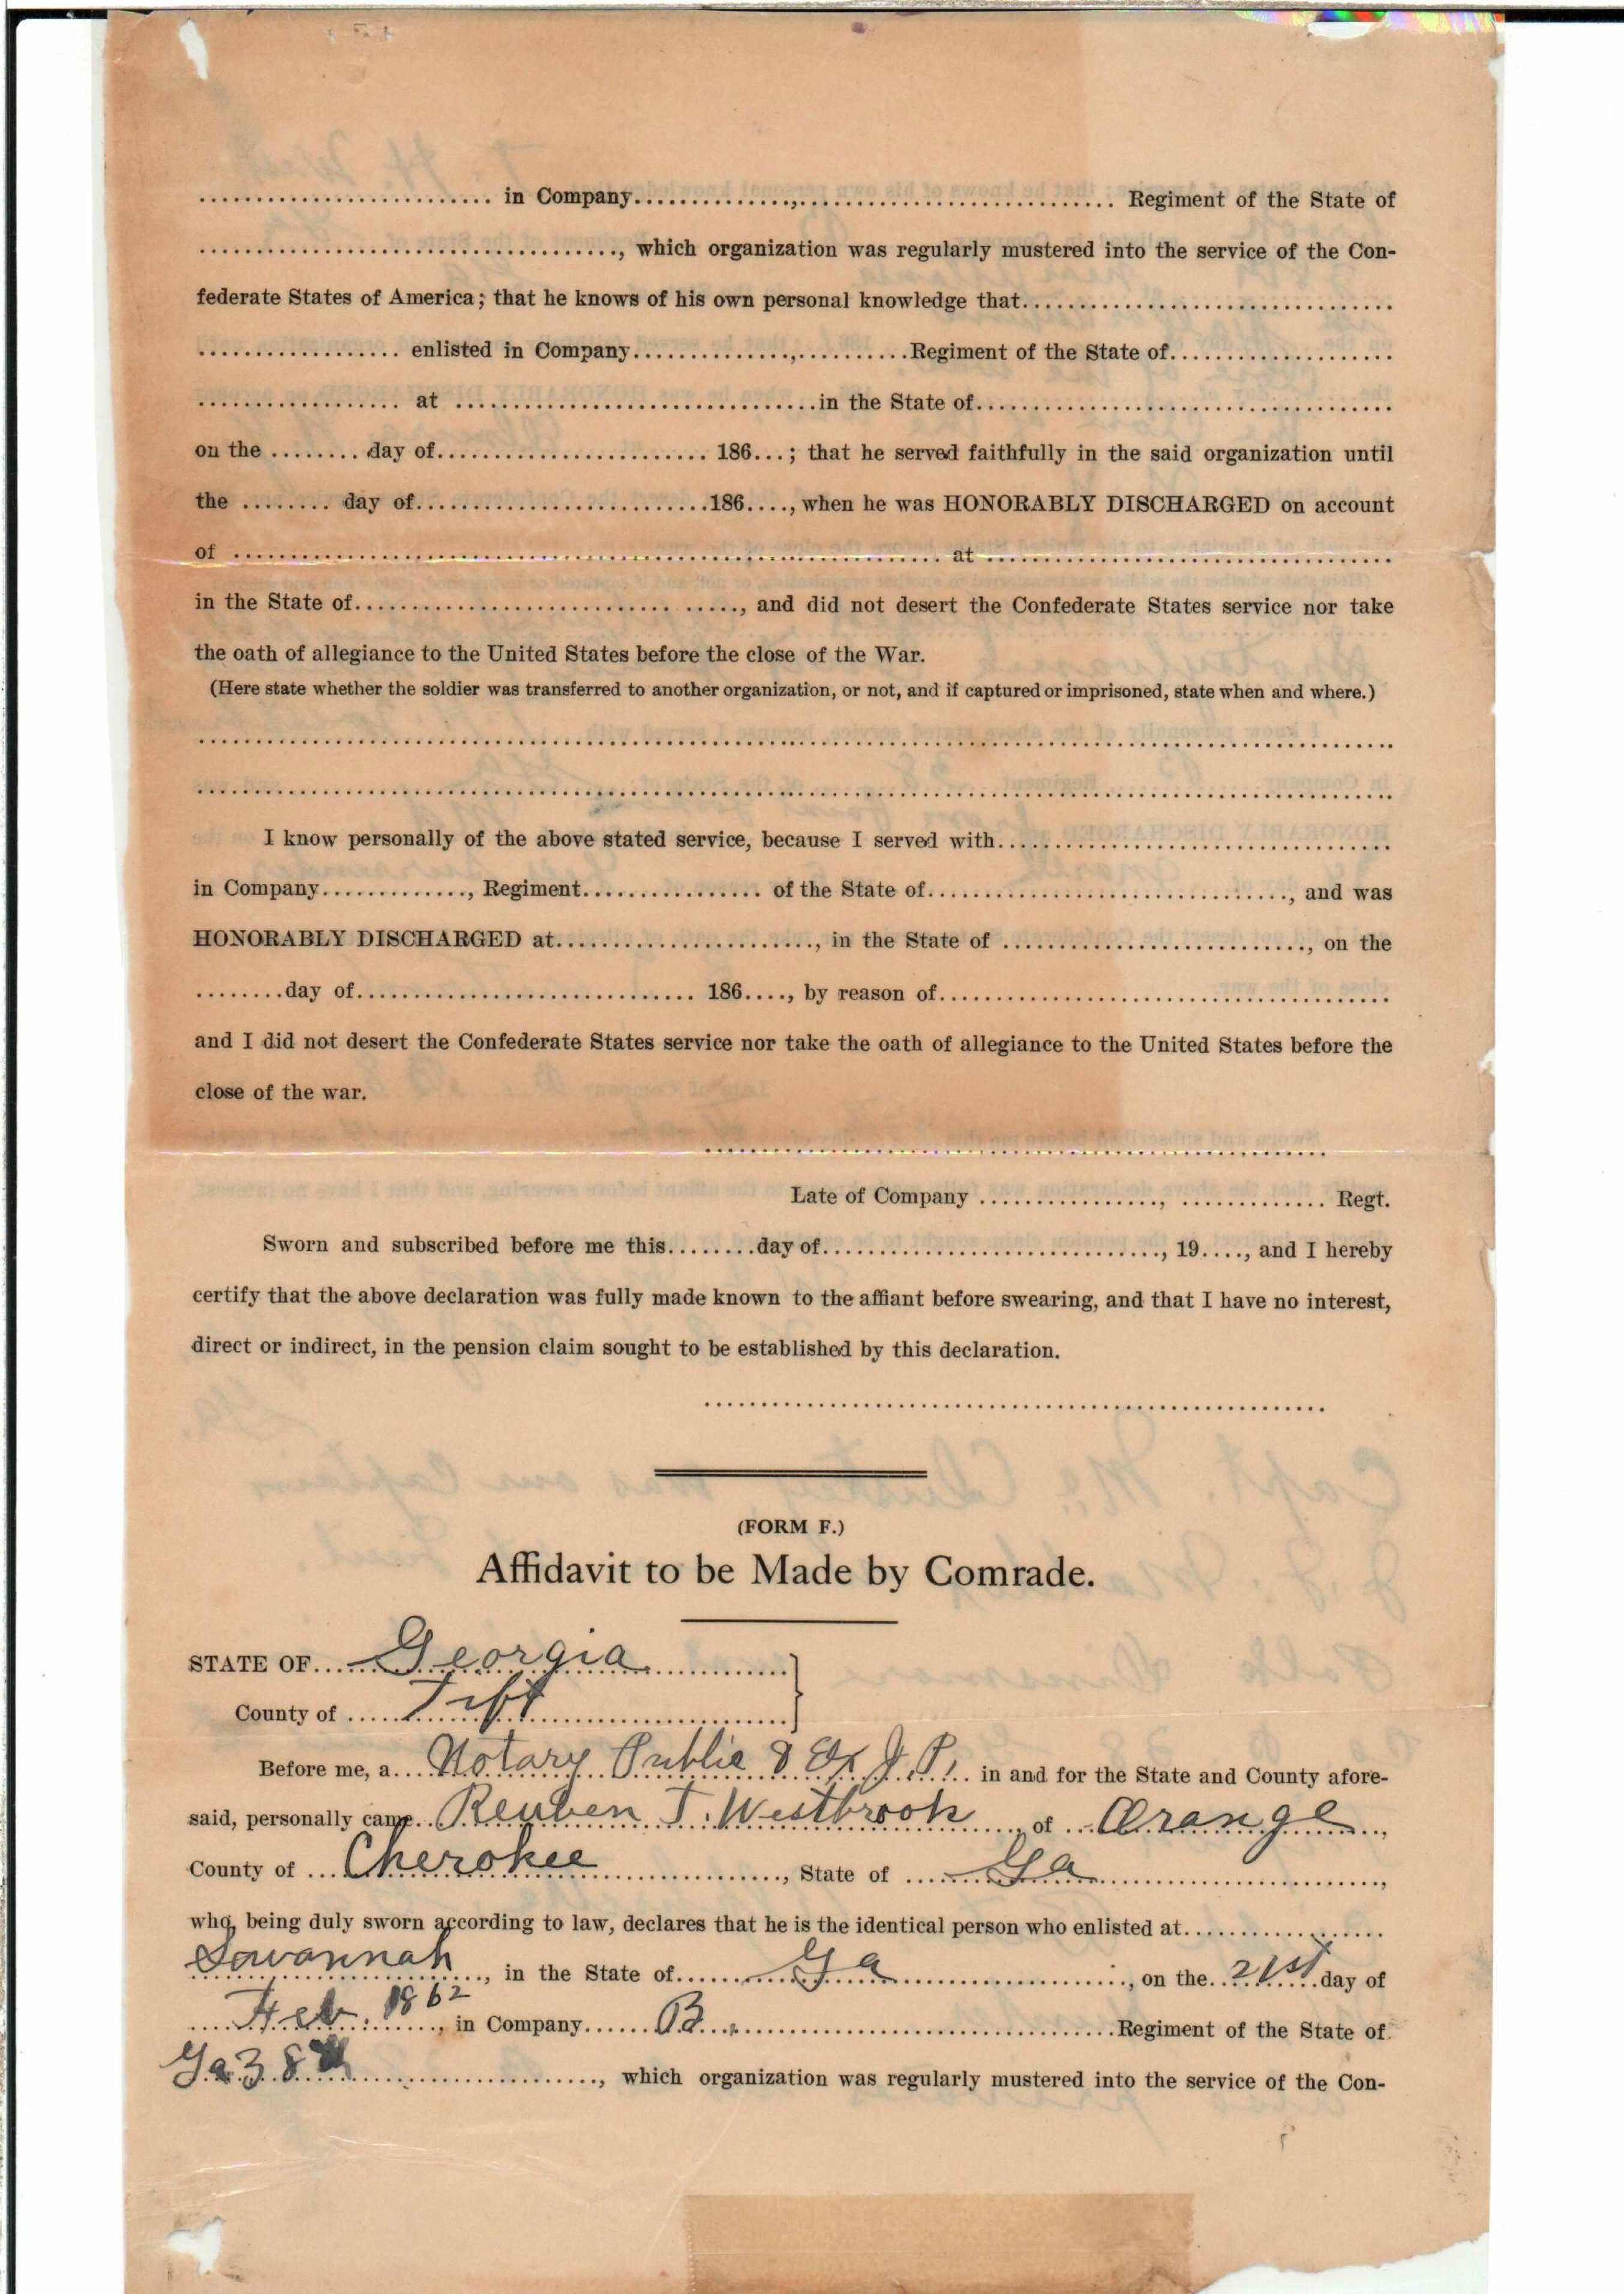 .......................... in Company..............,............................ Regiment of the State of
......................................, which organization was regularly mustered into the service of the Con-
federate States of America; that he knows of his own personal knowledge that.................................
.................. enlisted in Company..............,..........Regiment of the State of....................
.................. at .................................in the State of......................................
on the ........ day of........................ 186...; that he served faithfully in the said organization until
the ........ day of..........................186...., when he was HONORABLY DISCHARGED on account
of ................................................................ at ....................................
in the State of............................ ....., and did not desert the Confederate States service nor take
the oath of allegiance to the United States before the close of the War.
(Here state whether the soldier was transferred to another organization, or not, and if captured or imprisoned, state when and where.)
I know personally of the above stated service, because I served with...................................
in Company............., Regiment................ of the State of................................, and was
HONORABLY DISCHARGED at......................., in the State of ..........................., on the
........day of.............................. 186...., by reason of........................................
and I did not desert the Confederate States service nor take the oath of allegiance to the United States before the
close of the war.
Late of Company ................, ............. Regt.
Sworn and subscribed before me this........day of.............................., 19...., and I hereby
certify that the above declaration was fully made known to the affiant before swearing, and that I have no interest,
direct or indirect, in the pension claim sought to be established by this declaration.
(FORM F.)
Affidavit to be Made by Comrade.
STATE OF Georgia
County of Tift
Before me, a Notary Public & Ex J. P. in and for the State and County afore-
said, personally came Reuben T. Westbrook, of Orange,
County of Cherokee, State of Ga,
who, being duly sworn according to law, declares that he is the identical person who enlisted at
Savannah, in the State of Ga, on the 21st day of
Feb. 1862, in Company B. Regiment of the State of
Ga 38, which organization was regularly mustered into the service of the Con-